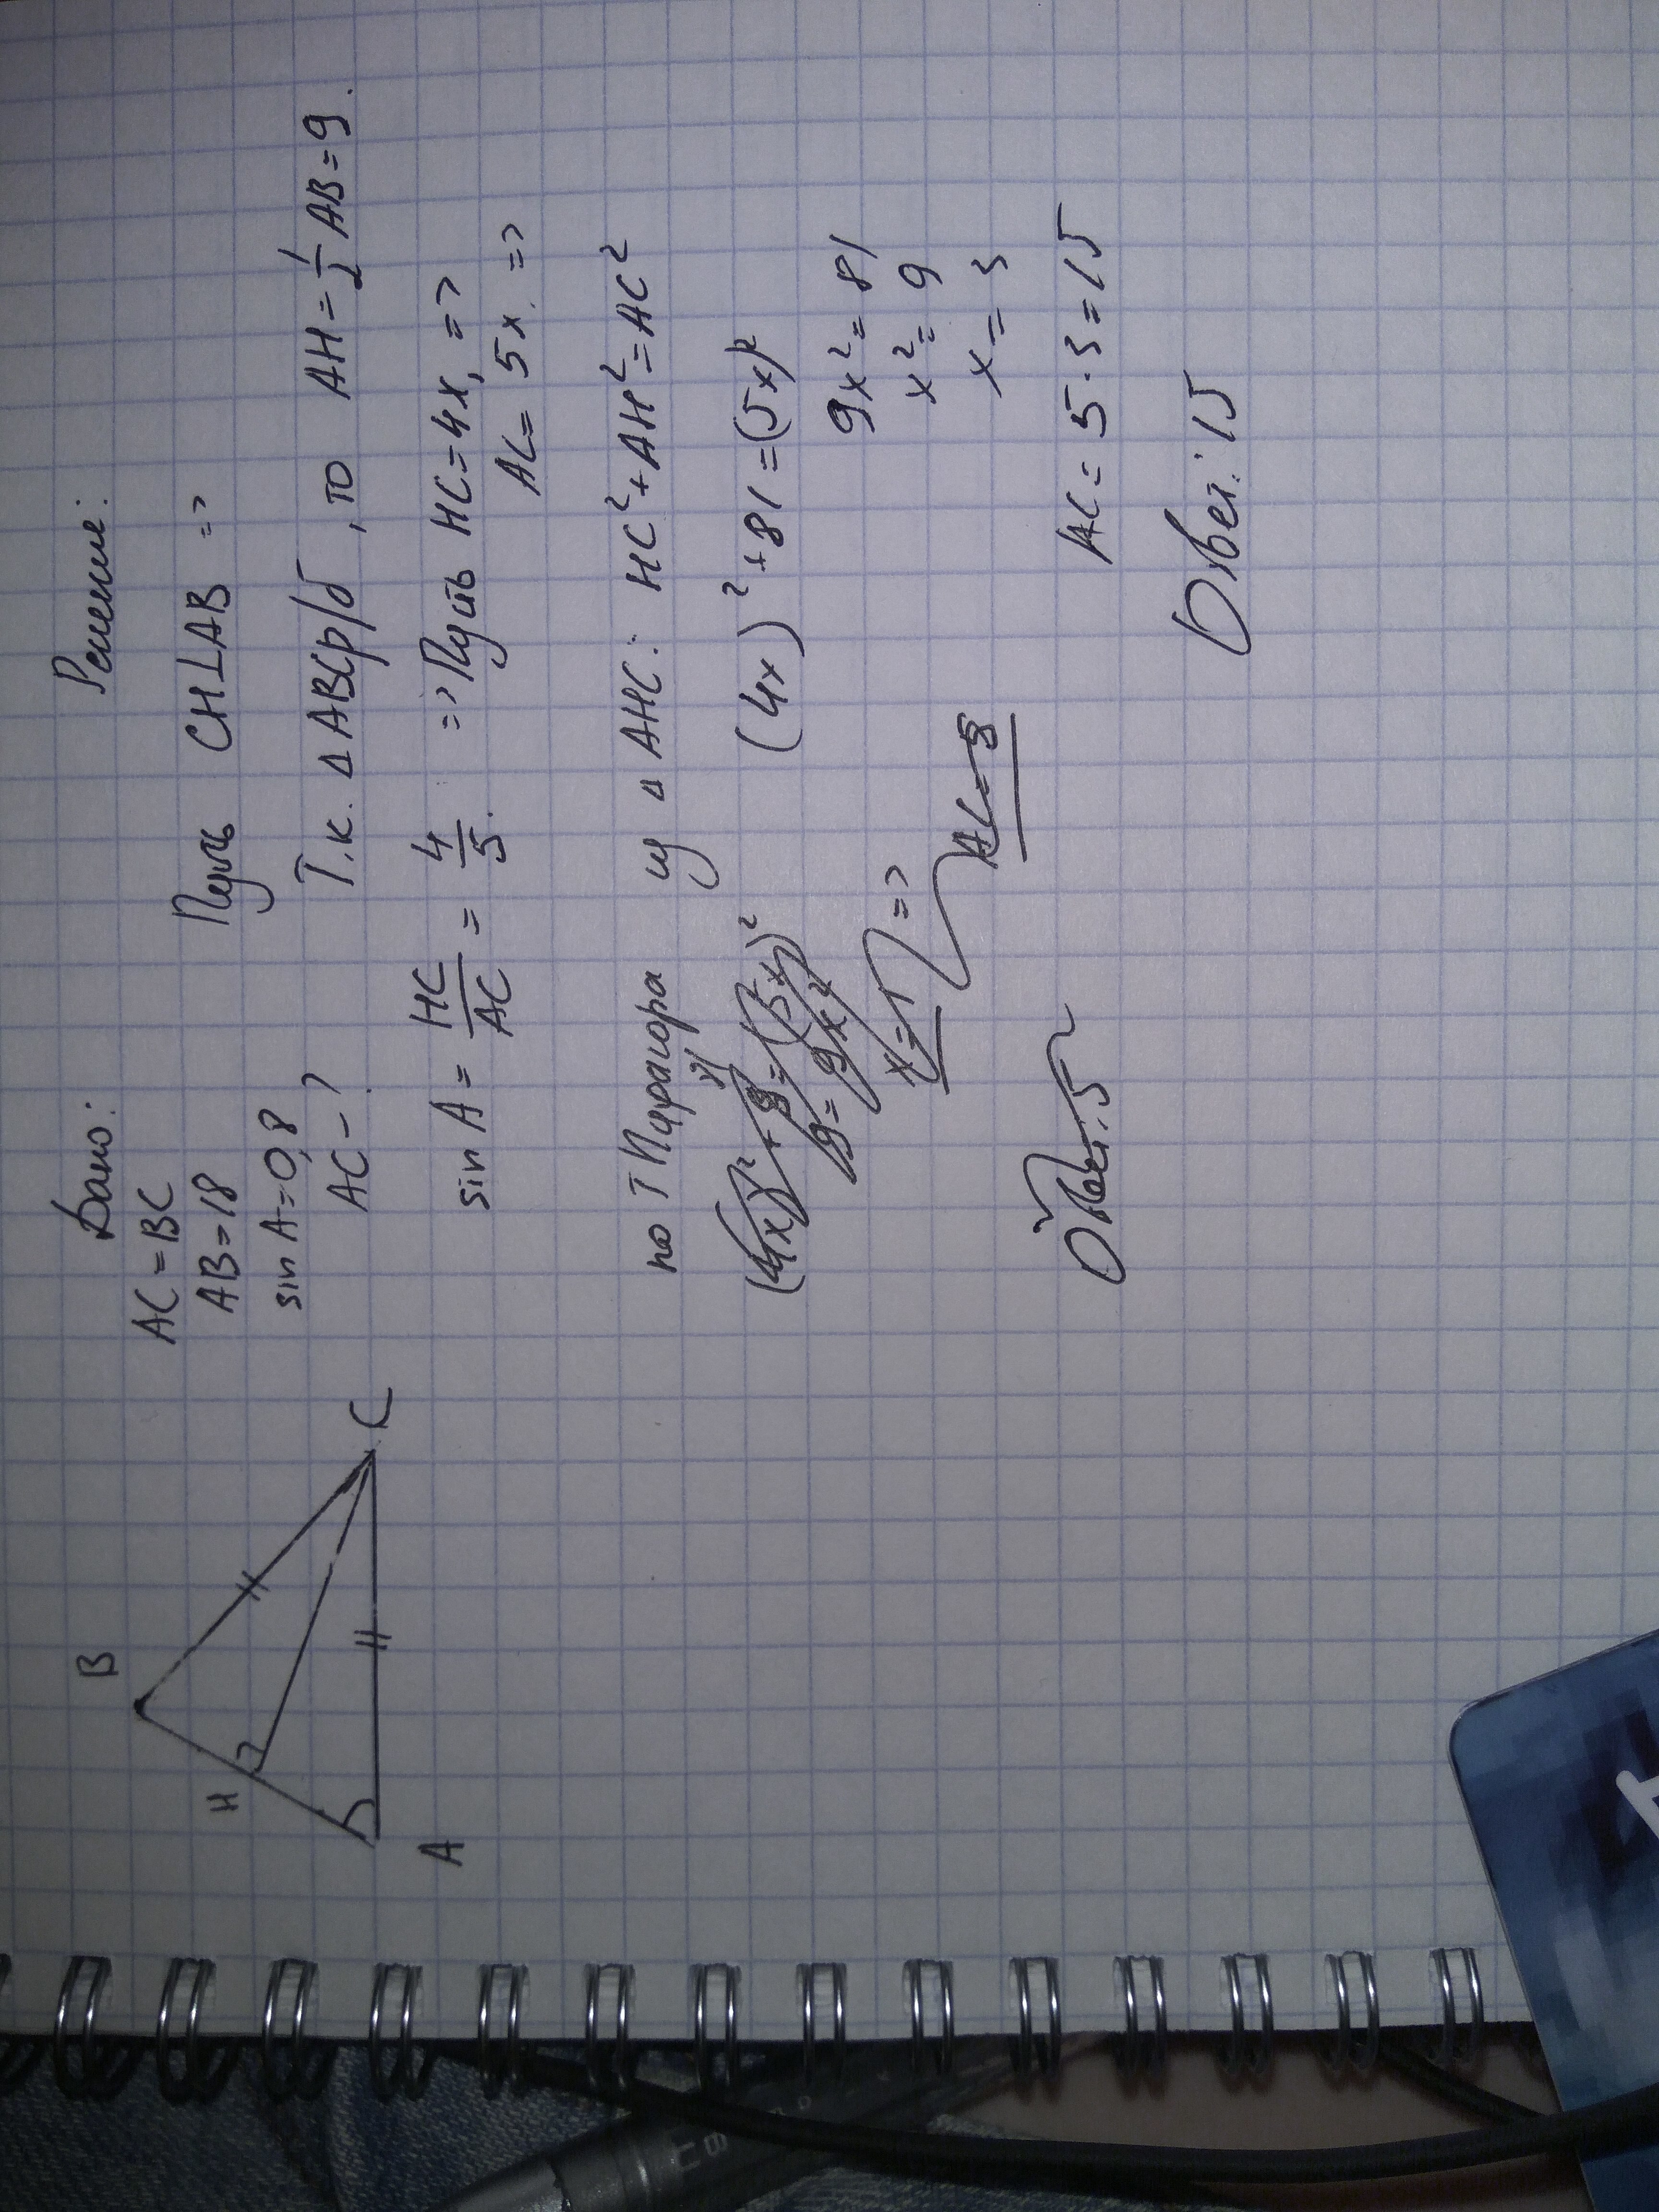 B
H
A
C
Дано:
AC = BC
AB = 18
sin A = 0,8
AC - ?
Решение:
Пусть CH⊥AB =>
Т.к. ΔABC р/б, то AH = 1/2 AB = 9.
sin A = HC/AC = 4/5. => Пусть HC = 4x, =>
AC = 5x. =>
по Т Пифагора из ΔAHC: HC² + AH² = AC²
(4x)² + 81 = (5x)²
9x² = 81
x² = 9
x = 3
AC = 5·3 = 15
Ответ: 15
(4x)² + 9 = (5x)²
9 = 9x²
x = 1 =>
AC = 5
Ответ: 5